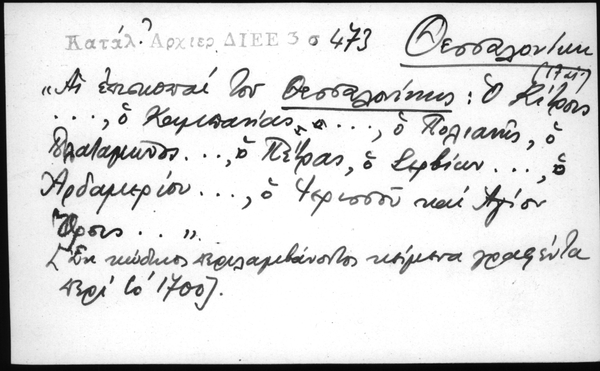 Κατάλ. Αρχιερ ΔΙΕΕ 3 σ 473 Θεσσαλονίκη
(17 αι)
„Αἱ ἐπισκοπαί του Θεσσαλονίκης : Ὁ Κίτρους
..., ὁ Καμπανίας ..., ὁ Πολιανῆς, ὁ
Πλαταμῶνος ..., ὁ Πέτρας, ὁ Σερβίων ..., ὁ
Ἀρδαμερίου ..., ὁ Ἱερισσοῦ καί Ἁγίου
Ὄρους ... „
[Ἐκ κώδικος περιλαμβάνοντος κείμενα γραφέντα
περί τό 1700].